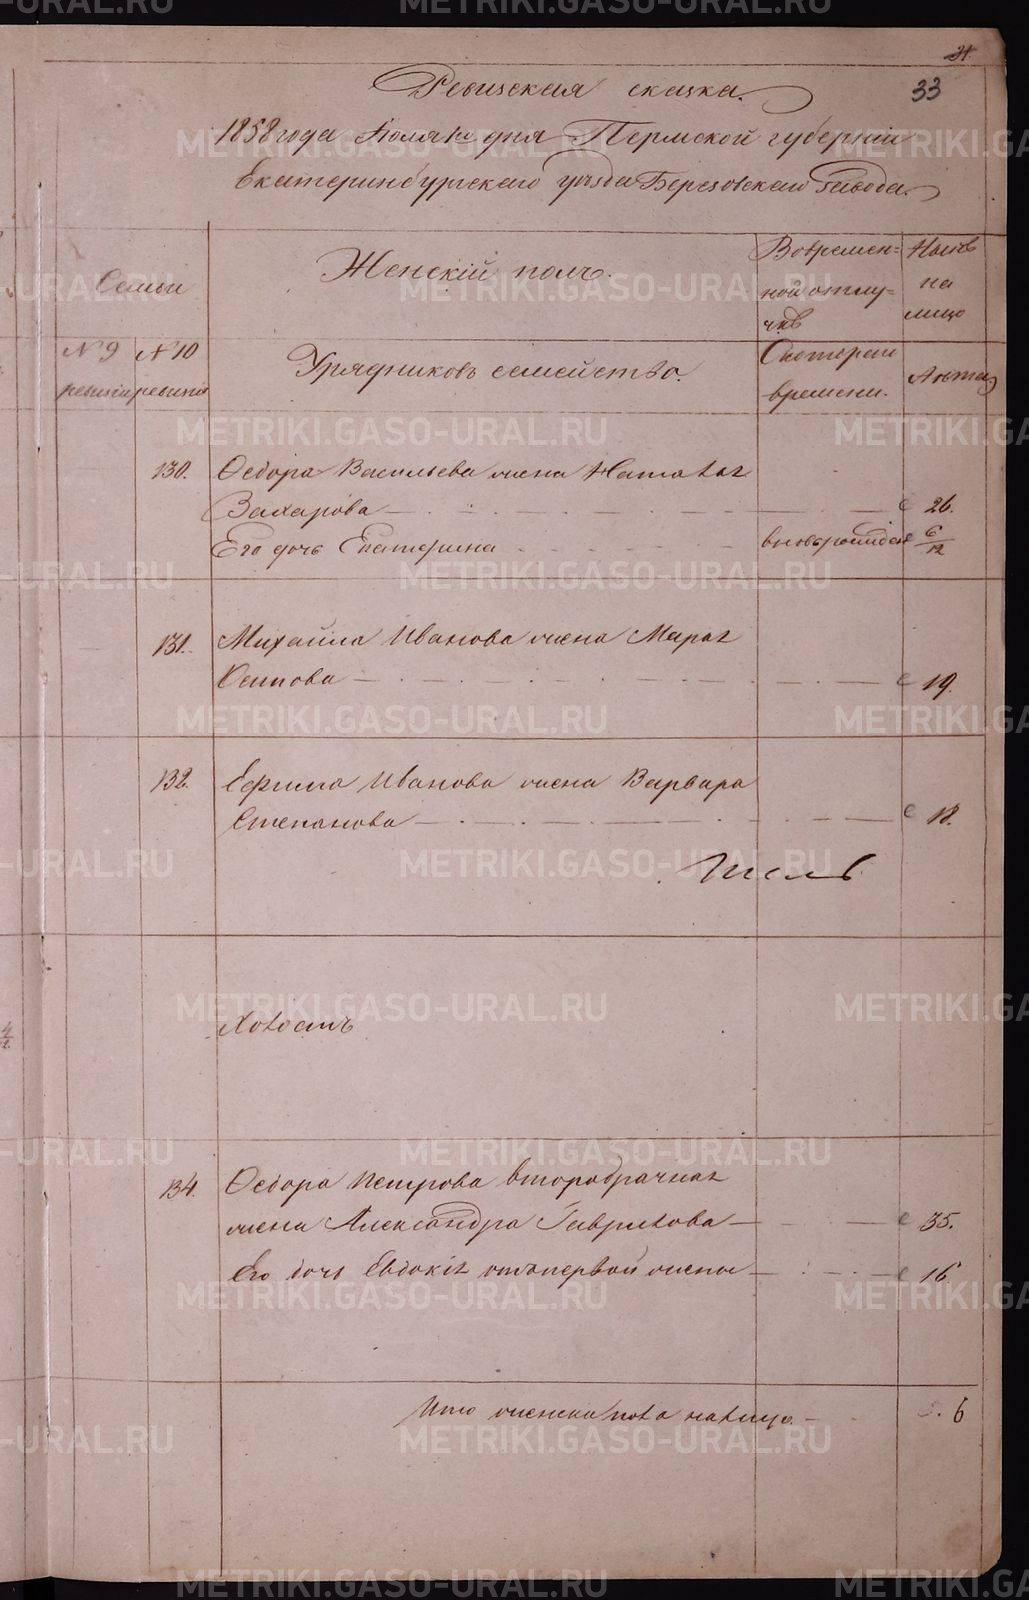 31.
33
Ревизская сказка.
1858 года Іюля 12 дня Пермской губерніи
Екатеринбургскаго уѣзда Березовскаго завода.
Семьи
Женскій полъ.
Во времен=
ной отлу=
чкѣ
Нынѣ
на
лицо
№ 9
ревизіи
№ 10
ревизіи
Урядниковъ семейство.
Съ котораго
времени.
Лѣта
130. Ѳедора Васильева жена Наталья
Захарова 26.
Его дочь Екатерина 6/12
131. Михайла Иванова жена Марья
Осипова 19.
132. Ефима Иванова жена Варвара
Степанова 18.
Холостъ
134. Ѳедора Петрова второбрачная
жена Александра Гаврилова 35.
Его дочь Евдокія отъ первой жены 16.
Итого женска пола налицо 6
METRIKI.GASO-URAL.RU